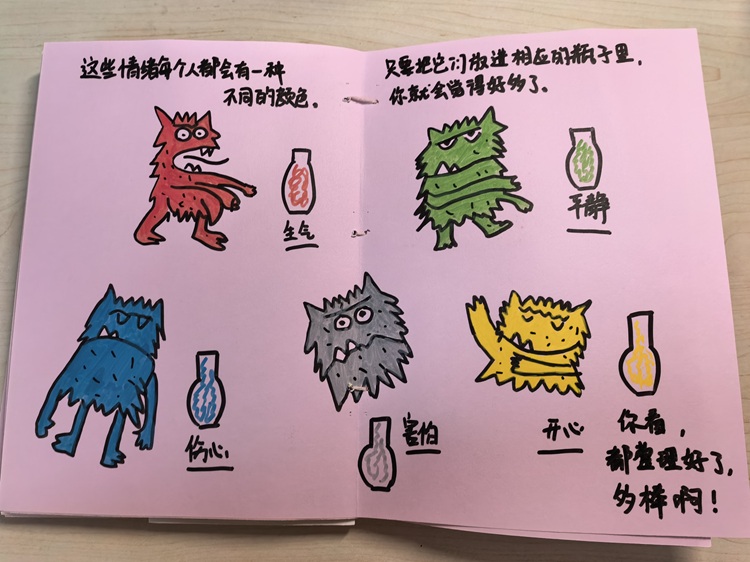 这些情绪每个人都会有一种
不同的颜色。
生气
伤心
只要把它们放进相应的瓶子里，
你就会觉得好多了。
平静
害怕
开心
你看，
都整理好了，
多棒啊！